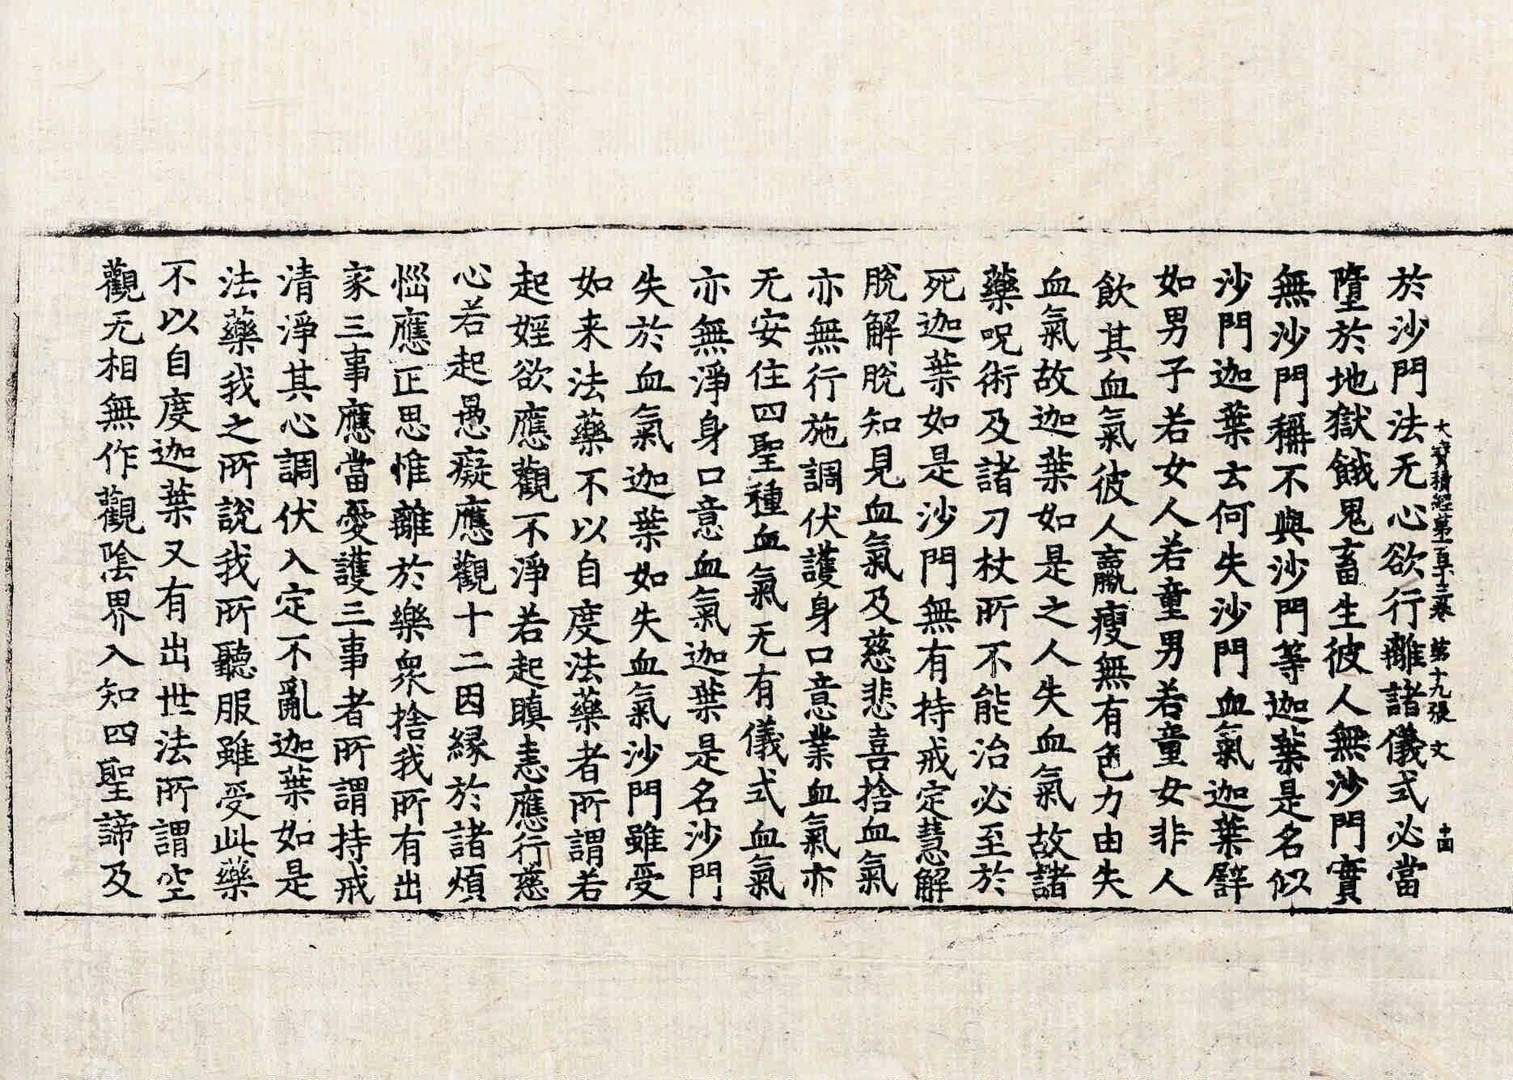 大寶積經第一百十三卷　第十九張　文　十四
於沙門法无心欲行離諸儀式必當
墮於地獄餓鬼畜生彼人無沙門實
無沙門稱不與沙門等迦葉是名似
沙門迦葉云何失沙門血氣迦葉譬
如男子若女人若童男若童女非人
飲其血氣彼人羸瘦無有色力由失
血氣故迦葉如是之人失血氣故諸
藥呪術及諸刀杖所不能治必至於
死迦葉如是沙門無有持戒定慧解
脫解脫知見血氣及慈悲喜捨血氣
亦無行施調伏護身口意業血氣亦
无安住四聖種血氣无有儀式血氣
亦無淨身口意血氣迦葉是名沙門
失於血氣迦葉如失血氣沙門雖受
如来法藥不以自度法藥者所謂若
起婬欲應觀不淨若起瞋恚應行慈
心若起愚癡應觀十二因緣於諸煩
惱應正思惟離於樂衆捨我所有出
家三事應當愛護三事者所謂持戒
清淨其心調伏入定不亂迦葉如是
法藥我之所說我所聽服雖受此藥
不以自度迦葉又有出世法所謂空
觀无相無作觀陰界入知四聖諦及